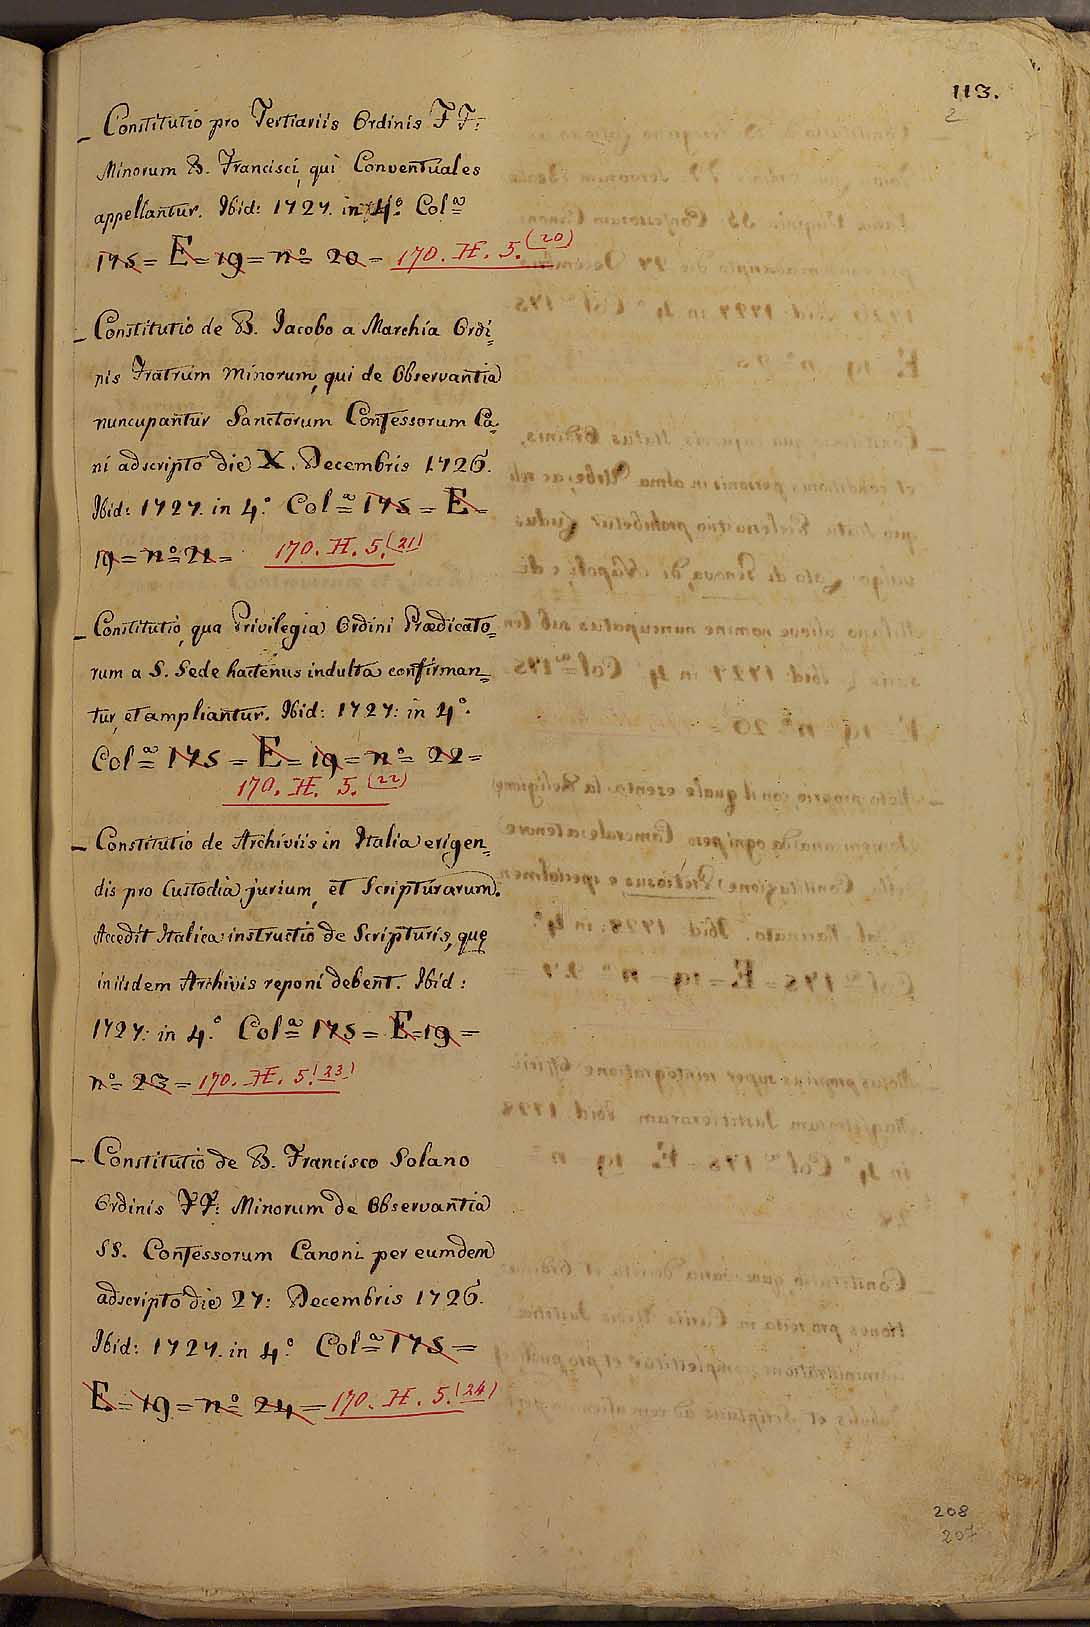 113.
2
– Constitutio pro Tertiariis Ordinis FF:
Minorum B. Francisci, qui Conventuales
appellantur. Ibid: 1727. in 4.º Colª
175 = E = 19 = nº 20 = 170. H. 5.(20)
– Constitutio de B. Iacobo a Marchia Ordi=
nis Fratrum Minorum, qui de Observantia
nuncupantur Sanctorum Confessorum Ca=
ni adscripto die X. Decembris 1726.
Ibid: 1727. in 4.º Colª 175 = E =
19 = nº 21 = 170. H. 5.(21)
– Constitutio, qua Privilegia Ordini Prædicato=
rum a S. Sede hactenus indulta confirman=
tur, et ampliantur. Ibid: 1727: in 4º.
Colª 175 = E = 19 = nº 22 =
170. H. 5.(22)
– Constitutio de Archiviis in Italia erigen=
dis pro Custodia jurium, et Scripturarum.
Accedit Italica instructio de Scripturis, quę
in iisdem Archivis reponi debent. Ibid:
1727: in 4.º Colª 175 = E = 19 =
nº 23 = 170. H. 5.(23)
– Constitutio de B. Francisco Solano
Ordinis FF: Minorum de Observantia
SS. Confessorum Canoni per eumdem
adscripto die 27: Decembris 1726.
Ibid: 1727. in 4.º Colª 175 =
E = 19 = nº 24 = 170. H. 5.(24)
208
207